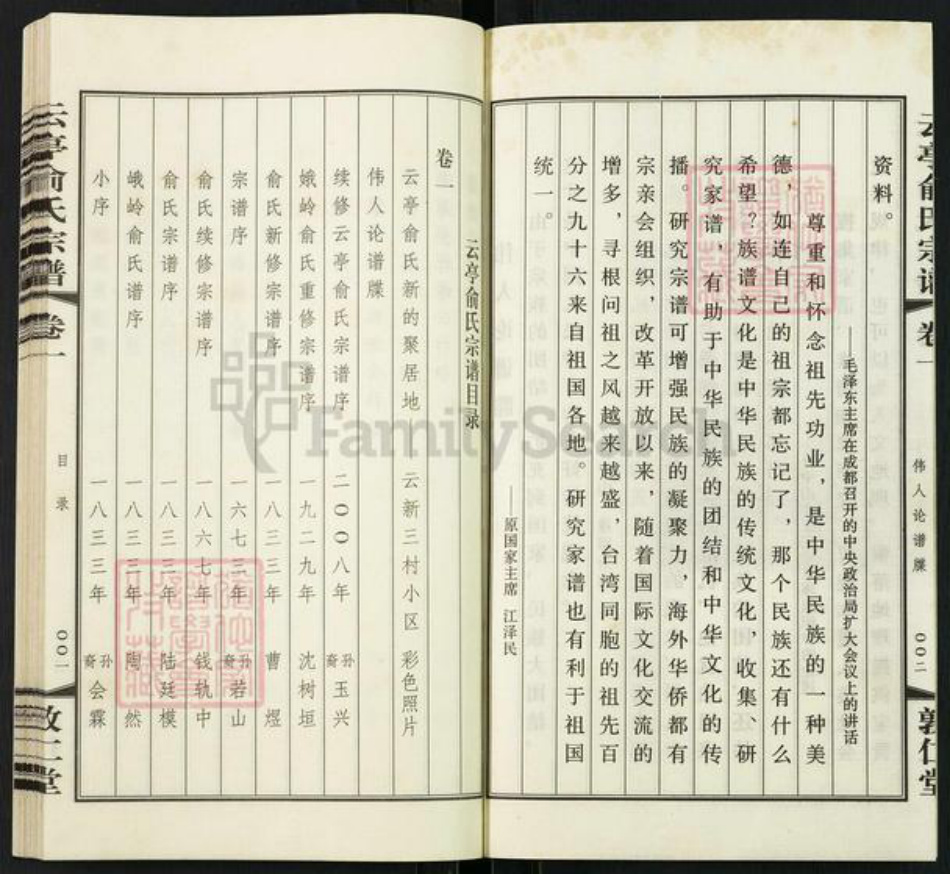 云亭俞氏宗谱 卷一
伟人论谱牒
〇〇二
敦仁堂
资料。
——毛泽东主席在成都召开的中央政治局扩大会议上的讲话
尊重和怀念祖先功业，是中华民族的一种美
德，如连自己的祖宗都忘记了，那个民族还有什么
希望？族谱文化是中华民族的传统文化，收集、研
究家谱，有助于中华民族的团结和中华文化的传
播。研究宗谱可增强民族的凝聚力，海外华侨都有
宗亲会组织，改革开放以来，随着国际文化交流的
增多，寻根问祖之风越来越盛，台湾同胞的祖先百
分之九十六来自祖国各地。研究家谱也有利于祖国
统一。
——原国家主席 江泽民
云亭俞氏宗谱目录
卷一
云亭俞氏新的聚居地 云新三村小区 彩色照片
伟人论谱牒
续修云亭俞氏宗谱序 二〇〇八年 裔孙 玉兴
娥岭俞氏重修宗谱序 一九二九年 沈树垣
俞氏新修宗谱序 一八三三年 曹煜
宗谱序 一六七三年 裔孙 若山
俞氏续修宗谱序 一八六七年 钱轨中
俞氏宗谱序 一八三三年 陆廷模
峨岭俞氏谱序 一八三三年 陶然
小序 一八三三年 裔孙 会霖
云亭俞氏宗谱 卷一
目录
〇〇一
敦仁堂
FamilySearch